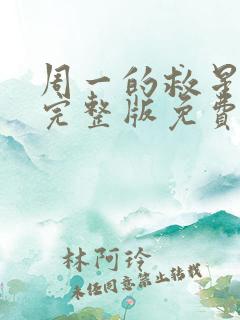 周一的救星
完整版免费
林阿玲
未经同意禁止转载